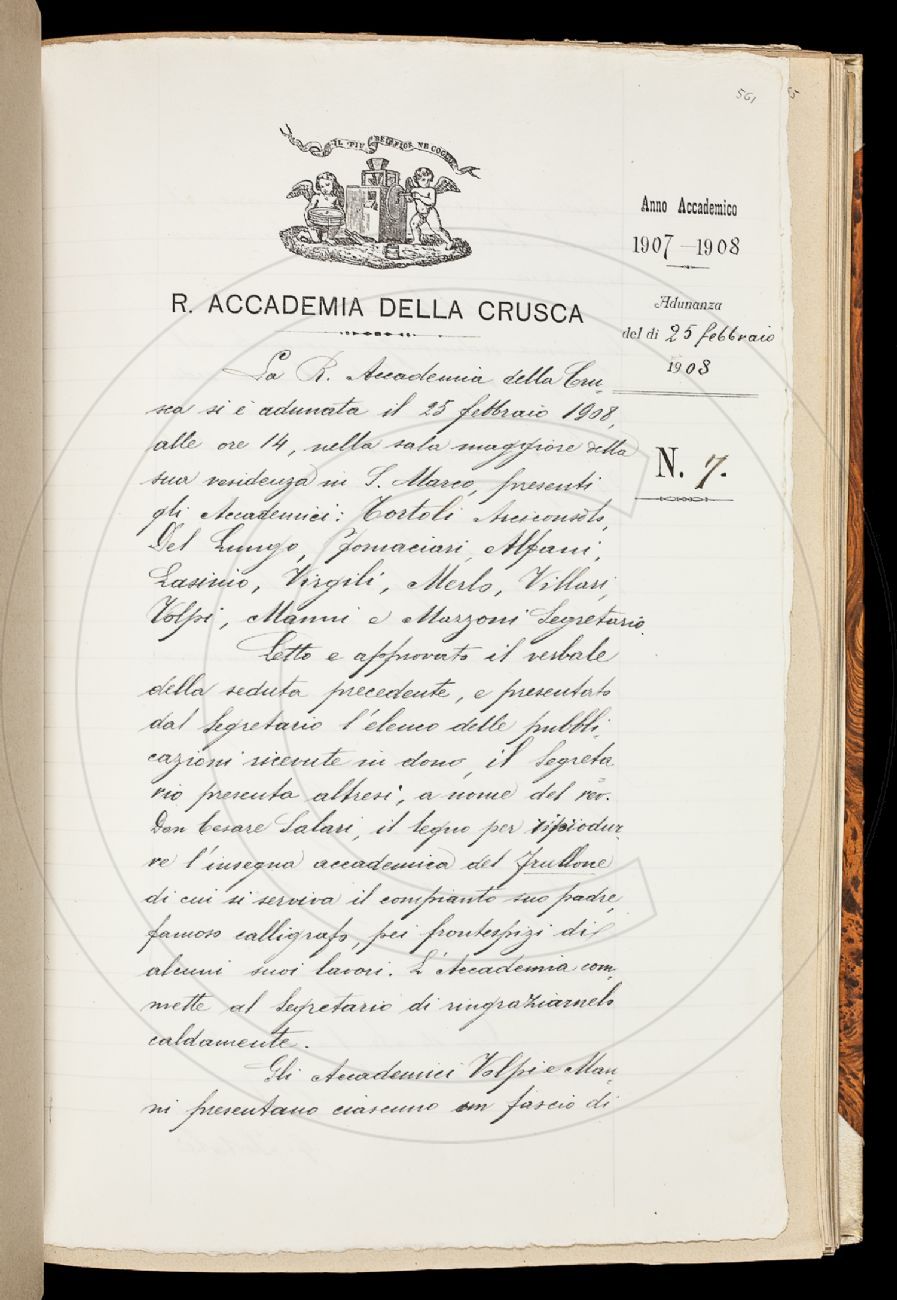 561
55
IL PIÙ BEL FIOR NE COGLIE
Anno Accademico
1907-1908
R. ACCADEMIA DELLA CRUSCA
Adunanza
del dì 25 febbraio
1908
N. 7.
La R. Accademia della Cru-
sca si è adunata il 25 febbraio 1908,
alle ore 14, nella sala maggiore della
sua residenza in S. Marco, presenti
gli Accademici: Tortoli Arciconsolo,
Del Lungo, Fornaciari, Alfani,
Lasinio, Virgili, Merlo, Villari,
Volpi, Manni e Mazzoni Segretario.
Letto e approvato il verbale
della seduta precedente, e presentato
dal Segretario l'elenco delle pubbli-
cazioni ricevute in dono, il Segreta-
rio presenta altresì, a nome del rev.
Don Cesare Salari, il legno per riprodur-
re l'insegna accademica del Frullone
di cui si serviva il compianto suo padre,
famoso calligrafo, pei frontespizi di
alcuni suoi lavori. L'Accademia com-
mette al Segretario di ringraziarnelo
caldamente.
Gli Accademici Volpi e Man-
ni presentano ciascuno un fascio di